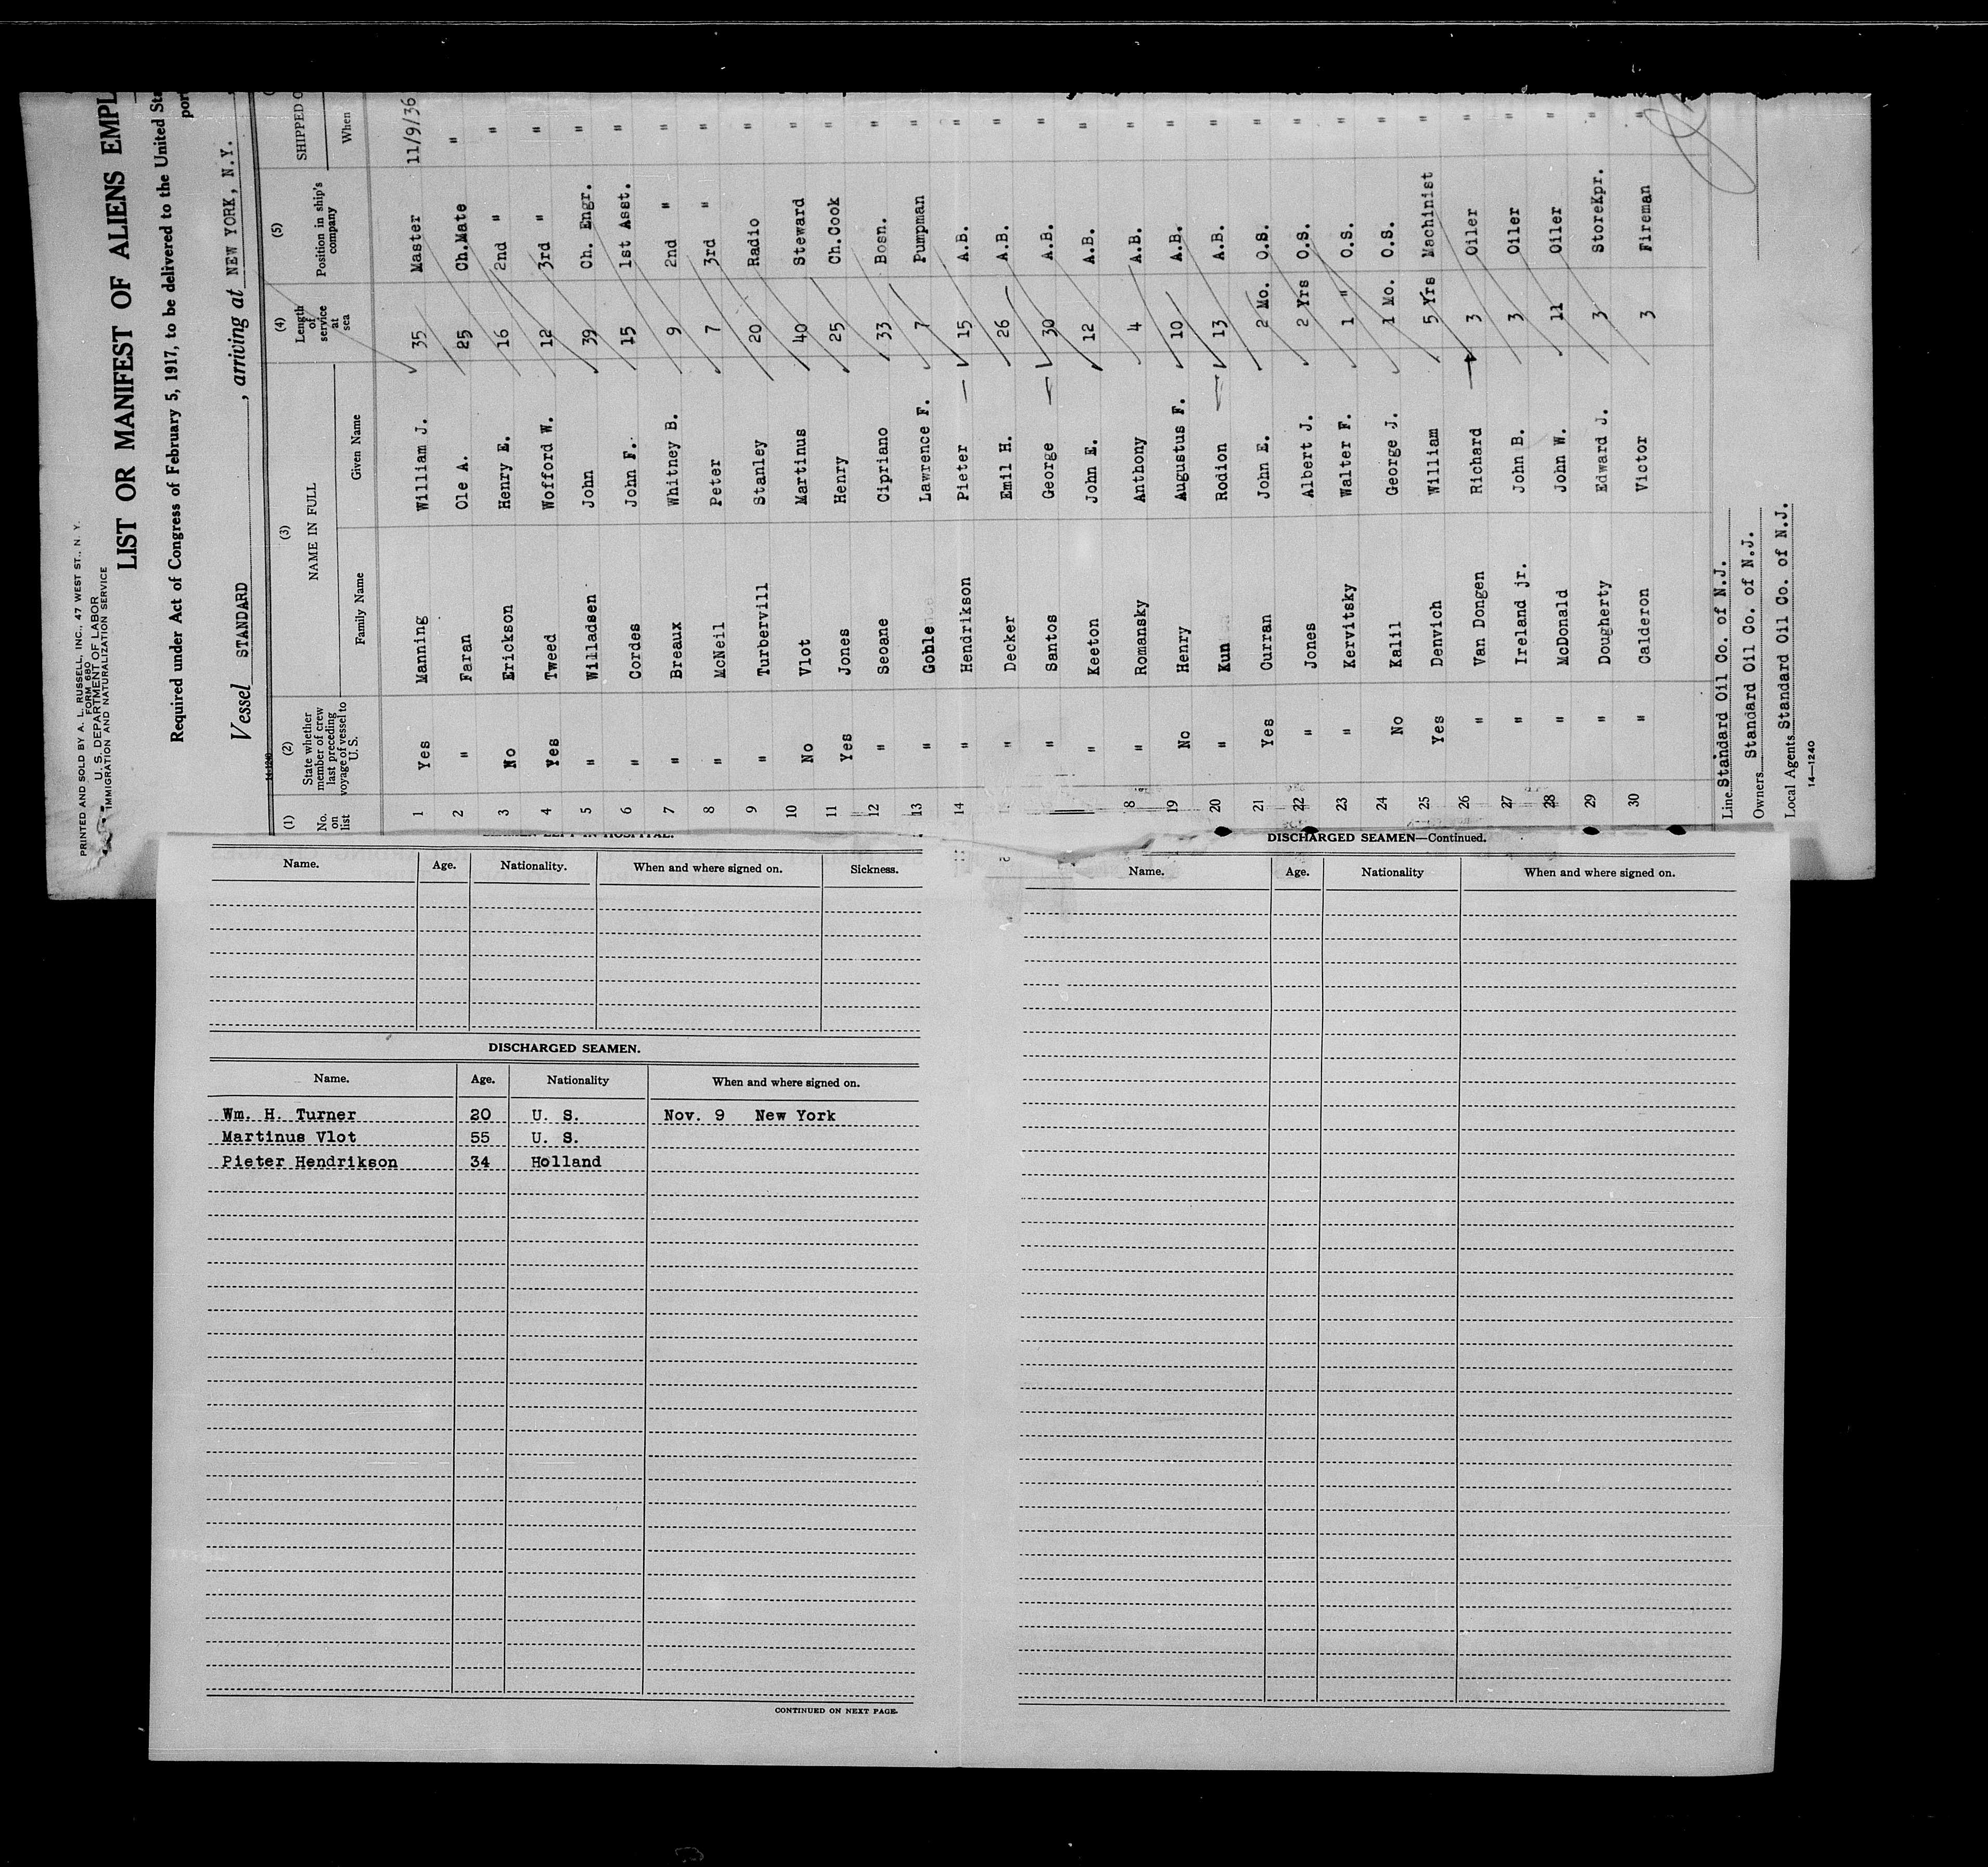 PRINTED AND SOLD BY A. L. RUSSELL, INC., 47 WEST ST., N. Y.
FORM 680
U. S. DEPARTMENT OF LABOR
IMMIGRATION AND NATURALIZATION SERVICE
LIST OR MANIFEST OF ALIENS EMPL
Required under Act of Congress of February 5, 1917, to be delivered to the United Sta
por
Vessel STANDARD , arriving at NEW YORK, N.Y.
(1) (2) (3) (4) (5)
No. on list State whether member of crew last preceding voyage of vessel to U.S. NAME IN FULL Family Name Given Name Length of service at sea Position in ship's company SHIPPED O When
1 Yes Manning William J. 35 Master 11/9/36
2 " Faran Ole A. 25 Ch.Mate "
3 No Erickson Henry E. 16 2nd " "
4 Yes Tweed Wofford W. 12 3rd " "
5 " Willadsen John 39 Ch. Engr. "
6 " Cordes John F. 15 1st Asst. "
7 " Breaux Whitney B. 9 2nd " "
8 " McNeil Peter 7 3rd " "
9 " Turbervill Stanley 20 Radio "
10 No Vlot Martinus 40 Steward "
11 Yes Jones Henry 25 Ch.Cook "
12 " Seoane Cipriano 33 Bosn. "
13 " Goble Lawrence F. 7 Pumpman "
14 " Hendrikson Pieter 15 A.B. "
" Decker Emil H. 26 A.B. "
" Santos George 30 A.B. "
" Keeton John E. 12 A.B. "
8 " Romansky Anthony 4 A.B. "
19 No Henry Augustus F. 10 A.B. "
20 " Kun Rodion 13 A.B. "
21 Yes Curran John E. 2 Mo. O.S. "
22 " Jones Albert J. 2 Yrs O.S. "
23 " Kervitsky Walter F. 1 " O.S. "
24 No Kalil George J. 1 Mo. O.S. "
25 Yes Denvich William 5 Yrs Machinist "
26 " Van Dongen Richard 3 Oiler "
27 " Ireland jr. John B. 3 Oiler "
28 " McDonald John W. 11 Oiler "
29 " Dougherty Edward J. 3 StoreKpr. "
30 " Calderon Victor 3 Fireman "
Line Standard Oil Co. of N.J.
Owners Standard Oil Co. of N.J.
Local Agents Standard Oil Co. of N.J.
14—1240
Name. Age. Nationality. When and where signed on. Sickness.
DISCHARGED SEAMEN.
Name. Age. Nationality When and where signed on.
Wm. H. Turner 20 U. S. Nov. 9 New York
Martinus Vlot 55 U. S.
Pieter Hendrikson 34 Holland
CONTINUED ON NEXT PAGE.
DISCHARGED SEAMEN—Continued.
Name. Age. Nationality When and where signed on.